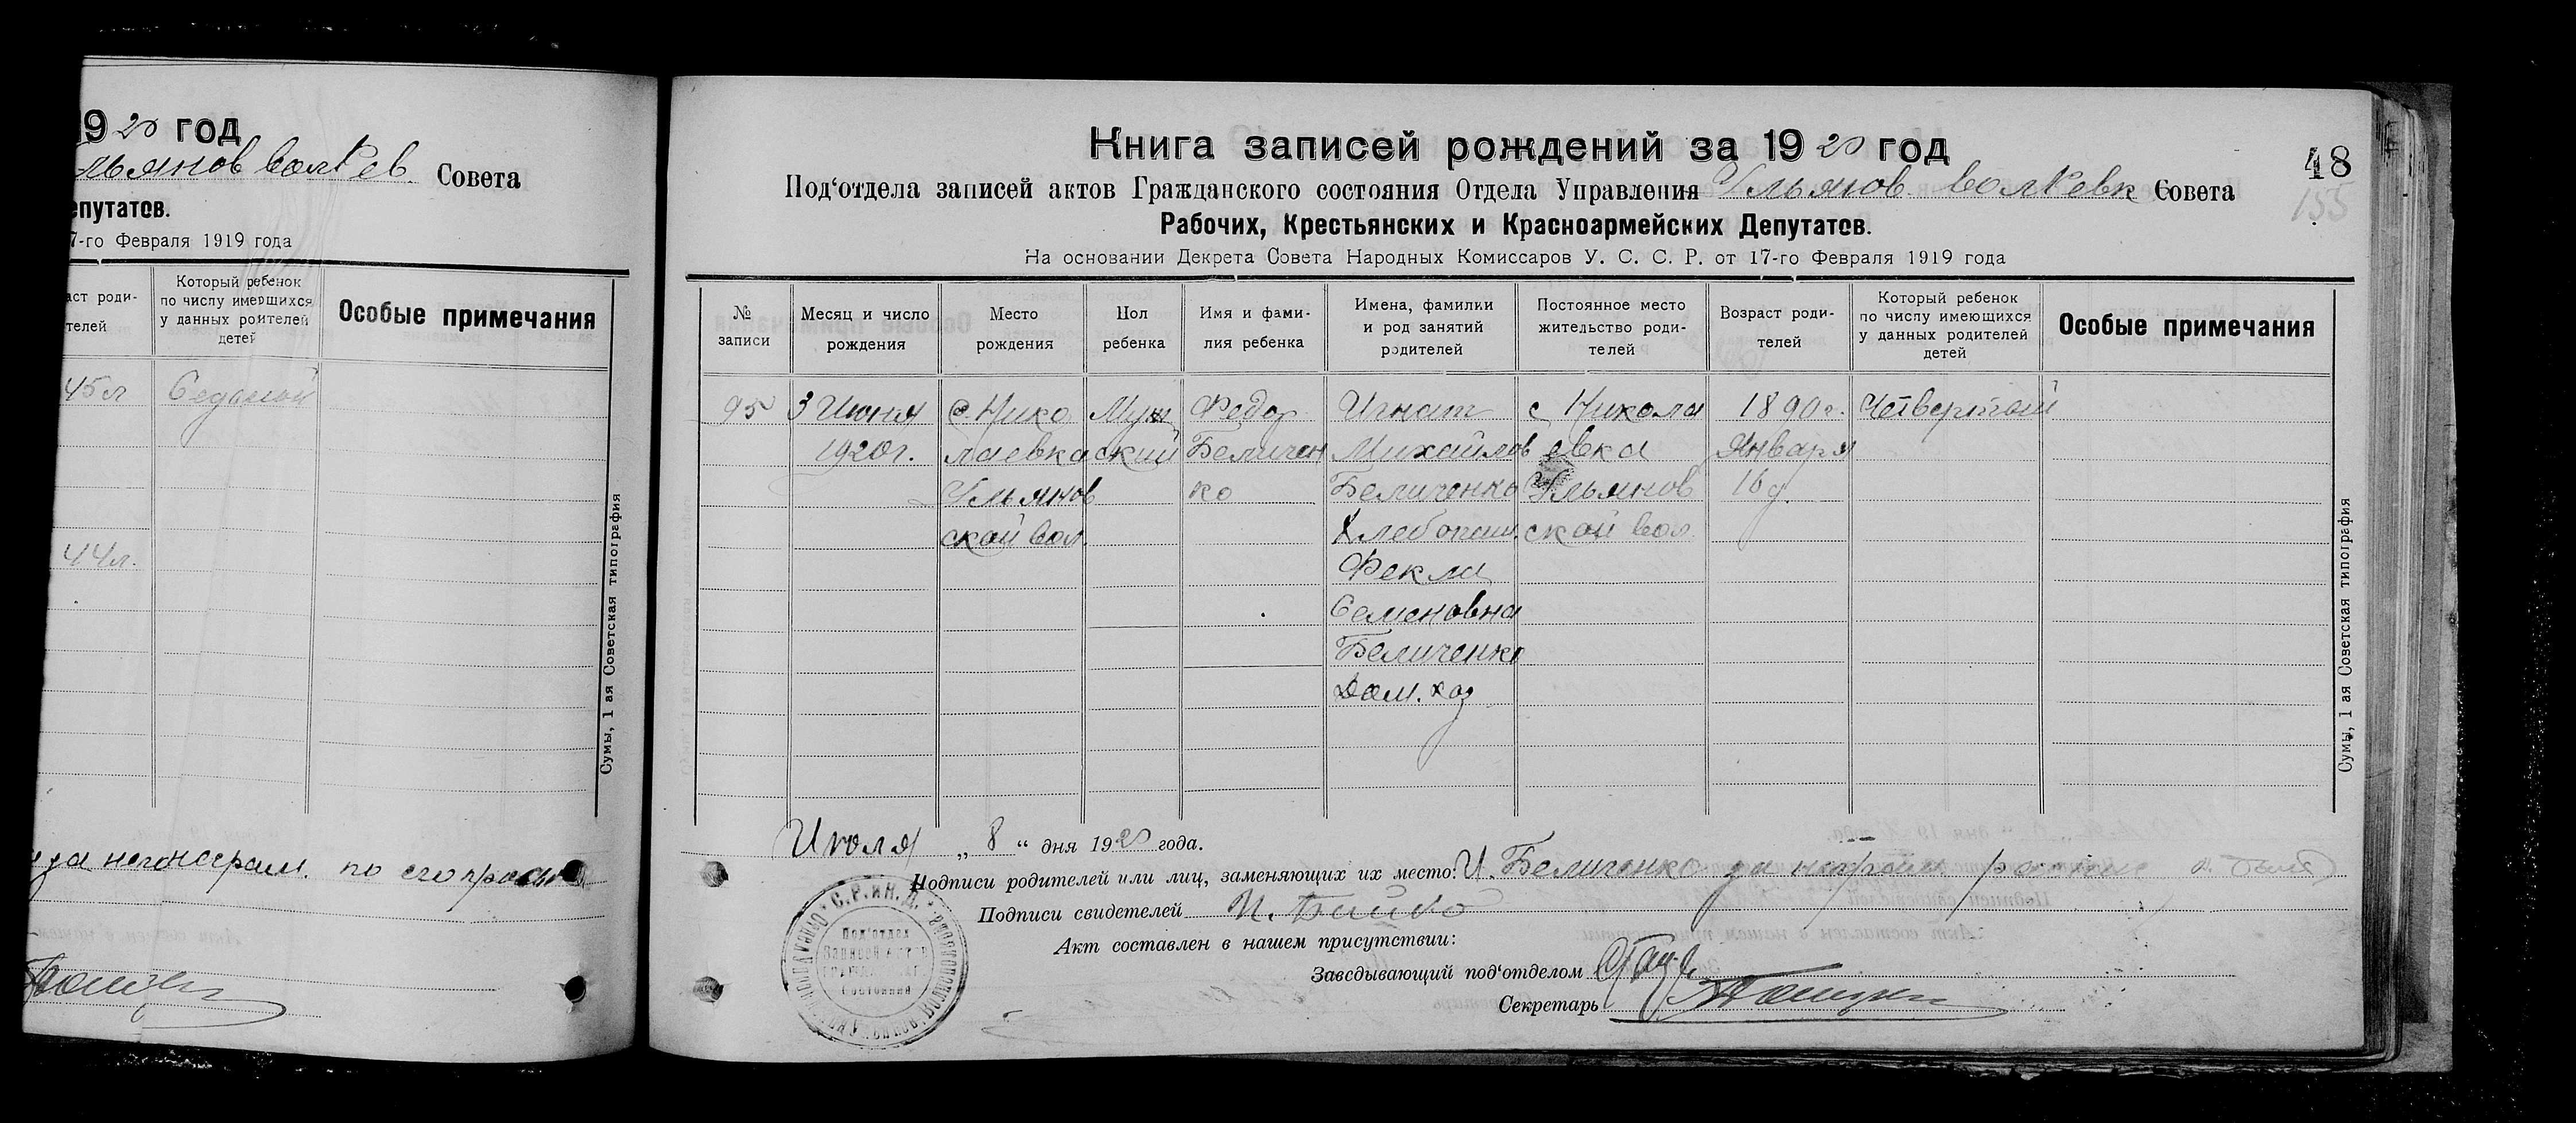 1920 год
льянов вол Рев Совета
епутатов.
7-го Февраля 1919 года
аст роди-
телей
Который ребенок
по числу имеющихся
у данных родителей
детей
Особые примечания
45 л
Седьмой
44 л.
за неграм. по его прось
Сумы, 1 ая Советская типография
Книга записей рождений за 1920 год
48
155
Под‘отдела записей актов Гражданского состояния Отдела Управления Ульянов. вол Ревк Совета
Рабочих, Крестьянских и Красноармейских Депутатов.
На основании Декрета Совета Народных Комиссаров У. С. С. Р. от 17-го Февраля 1919 года
№
записи
Месяц и число
рождения
Место
рождения
Пол
ребенка
Имя и фами-
лия ребенка
Имена, фамилии
и род занятий
родителей
Постоянное место
жительство роди-
телей
Возраст роди-
телей
Который ребенок
по числу имеющихся
у данных родителей
детей
Особые примечания
95
3 Июня
1920 г.
с. Нико
лаевка
Ульянов
ской вол.
Муж
ский
Федор
Беличен
ко
Игнат
Михайлов
Беличенко
Хлебопаш.
Фекла
Семеновна
Беличенко
Дом. хоз
с Никола
евка
Ульянов
ской вол
1890 г.
Января
16 д.
Четвертый
Сумы, 1 ая Советская типография
Июля „ 8 “ дня 1920 года.
Подписи родителей или лиц, заменяющих их место: И. Беличенко за неграм
Подписи свидетелей И. Бойко
Акт составлен в нашем присутствии:
Заведывающий под‘отделом
Секретарь
С.Р. и К. Д.
Под‘отдел
Записей актов
Состояния